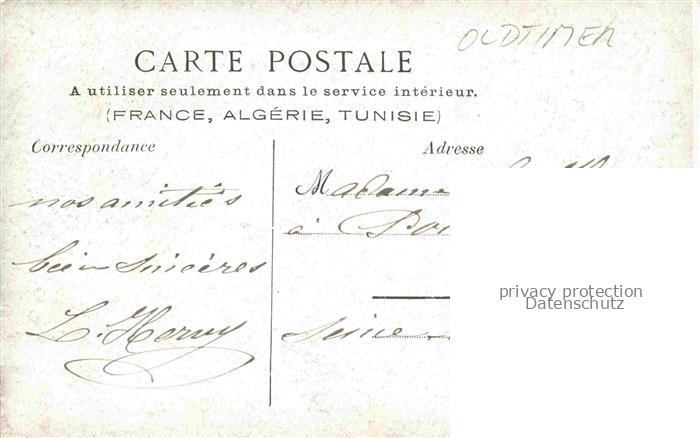 OLDTIMER
CARTE POSTALE
A utiliser seulement dans le service intérieur.
(FRANCE, ALGÉRIE, TUNISIE)
Correspondance
nos amitiés
bien sincères
L. Hervy
Adresse
Madame
à
Seine
privacy protection
Datenschutz